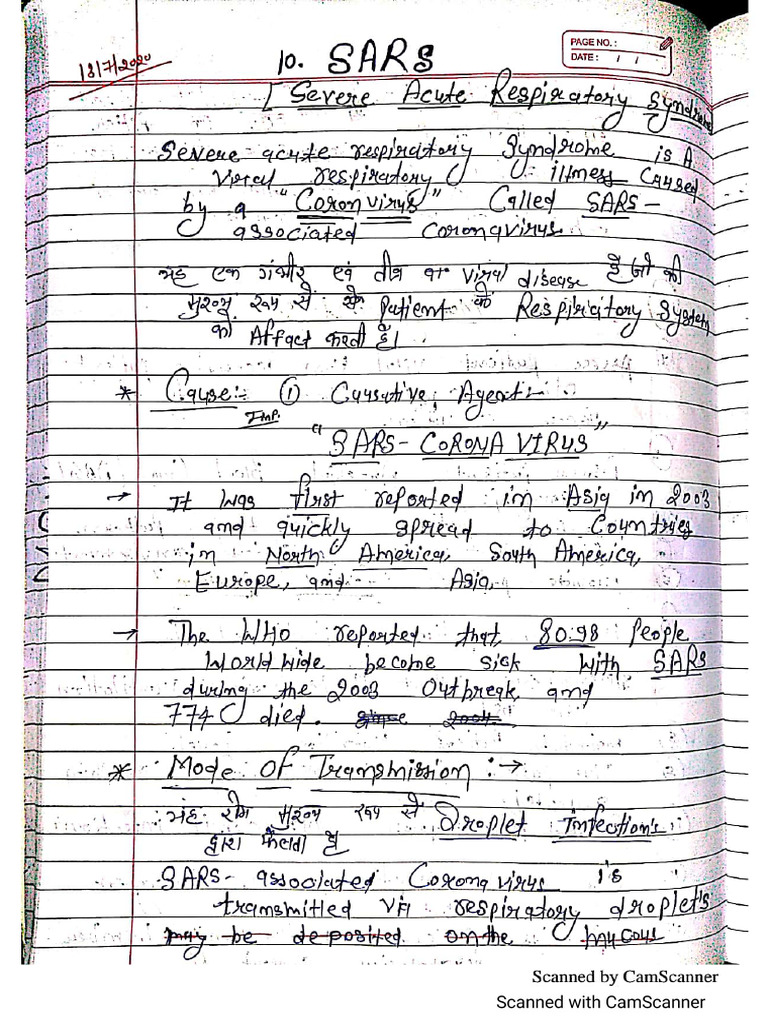 18/7/2020
10. SARS
PAGE NO.:
DATE: / /
[ Severe Acute Respiratory Syndrome
Severe acute respiratory Syndrome is A
Viral respiratory illness Caused
by a "Coronvirus" Called SARS-
associated coronavirus.
यह एक गंभीर एवं तीव्र का Viral disease है जो की
मुख्य रूप से के Patient के Respiratory System
को Affact करती है।
* Cause:- ① Causative Agent:-
Imp.
"SARS-CORONA VIRUS"
→ It was first reported in Asia in 2003
and quickly spread to Countries
in North America, South America,
Europe, and Asia,
→ The WHO reported that 80.98 People
World wide become sick with SARS
during the 2003 Outbreak and
774 died. since 2004.
* Mode Of Transmission :→
यह रोग मुख्य रूप से Droplet Infection's
द्वारा फैलता है
SARS-associated Corona virus is
transmitled via respiratory droplet's
may be deposited on the mucous
Scanned by CamScanner
Scanned with CamScanner